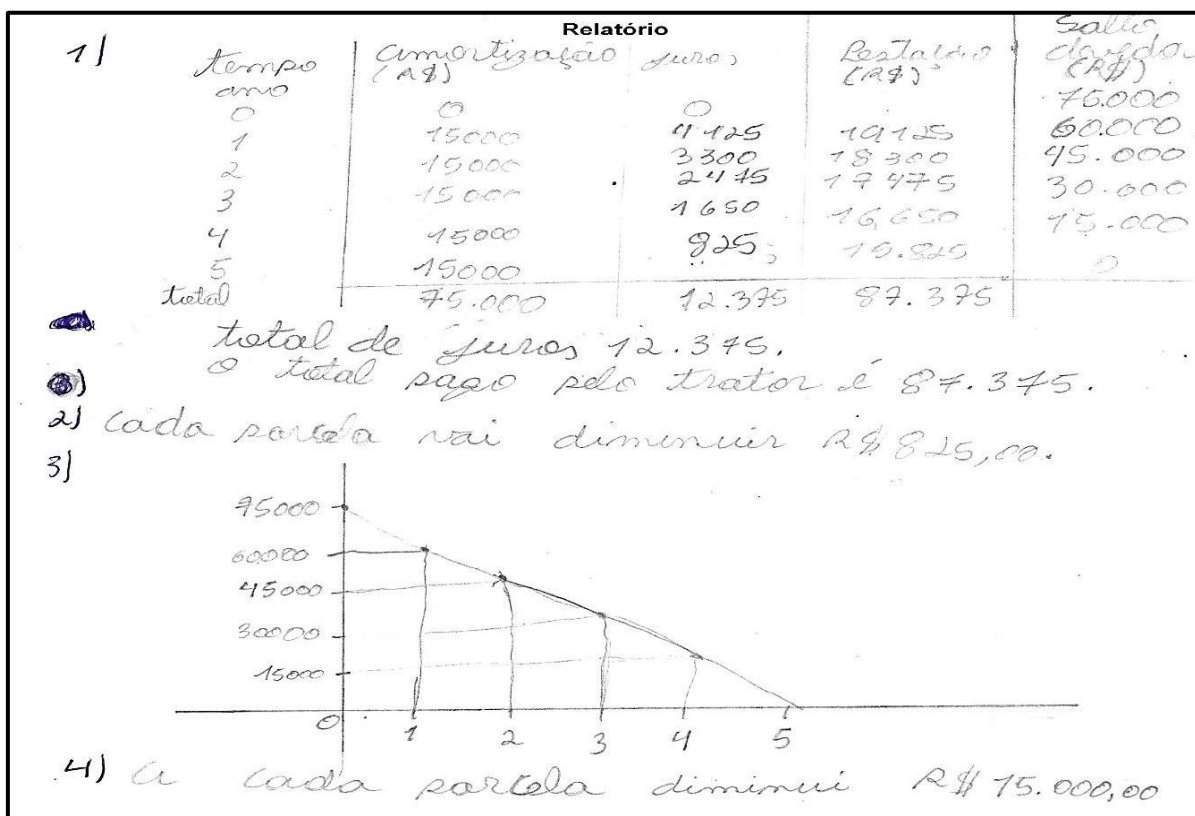 Relatório
1) tempo ano amortização (R$) juros Prestação (R$) Saldo devedor (R$)
0 0 0 75.000
1 15000 4125 19125 60.000
2 15000 3300 18300 45.000
3 15000 2475 17475 30.000
4 15000 1650 16,650 15.000
5 15000 825 15.825 0
total 75.000 12.375 87.375
total de juros 12.375.
o total pago pelo trator é 87.375.
2) Cada parcela vai diminuir R$ 825,00.
3)
75000
60000
45000
30000
15000
0 1 2 3 4 5
4) a cada parcela diminui R$ 15.000,00